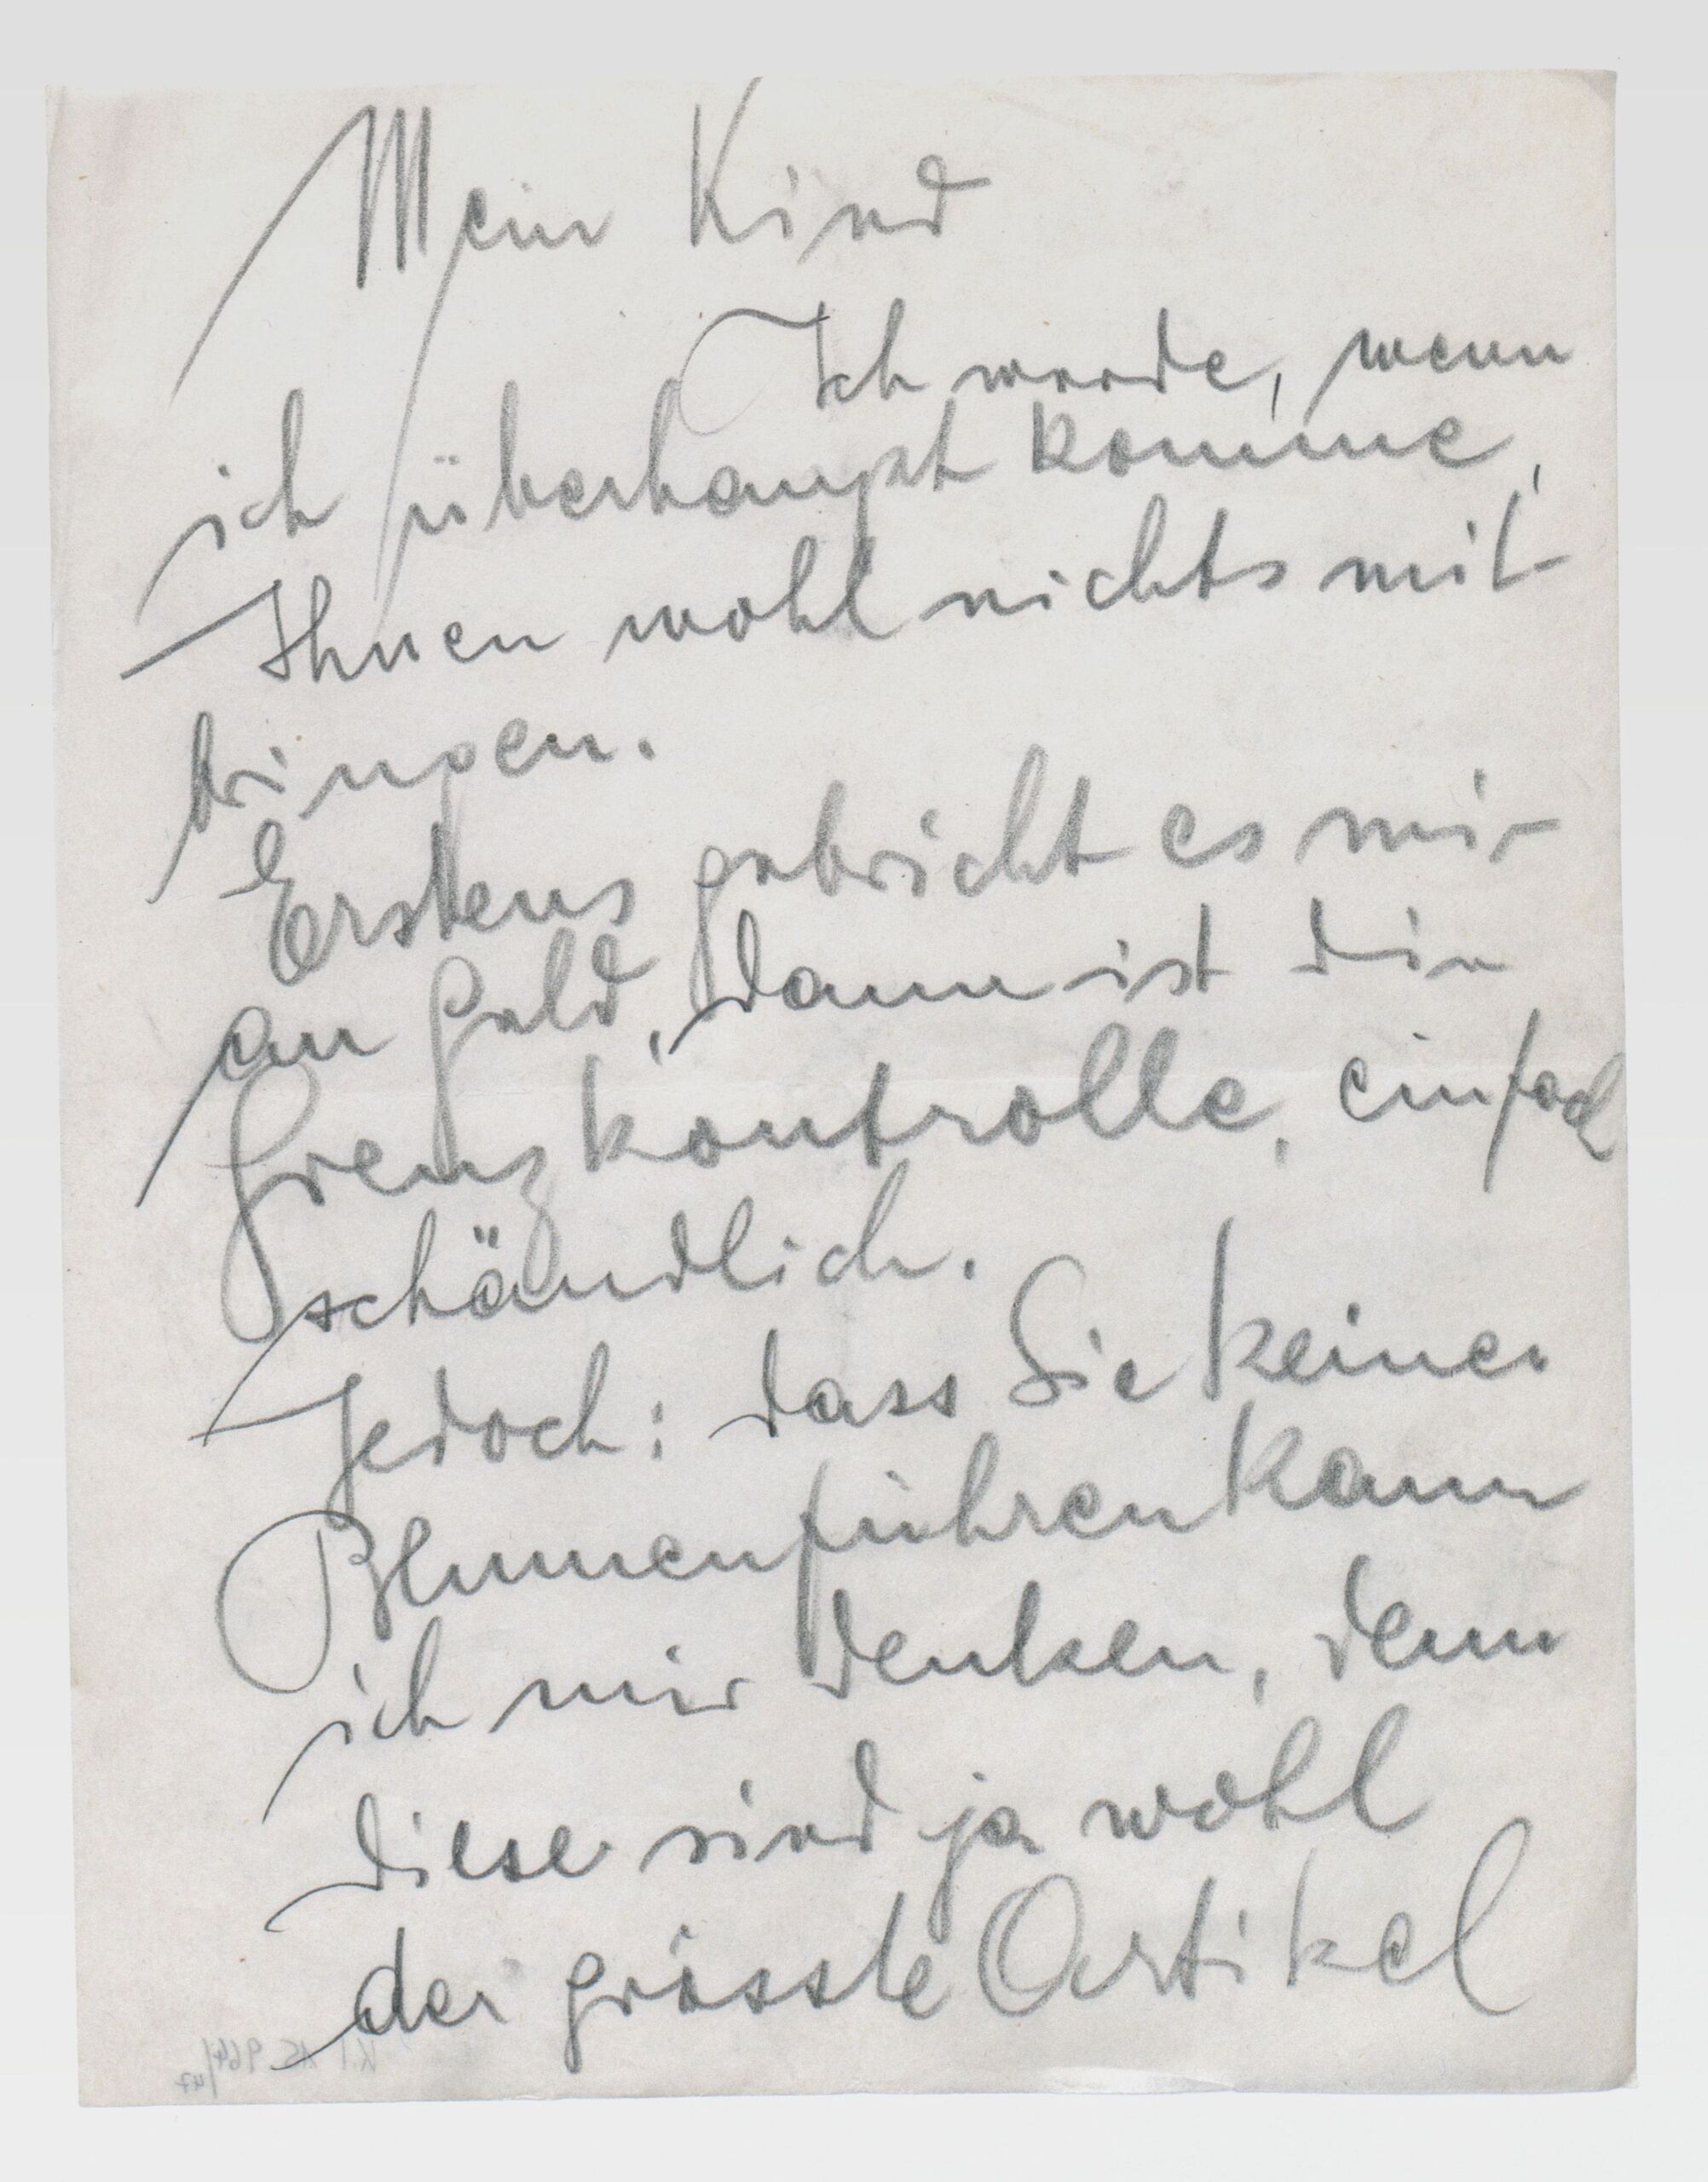 Mein Kind
Ich werde, wenn
ich überhaupt komme,
Ihnen wohl nichts mit-
bringen.
Erstens gebricht es mir
an Geld, dann ist die
Grenzkontrolle, einfach
schändlich.
Jedoch: dass Sie keine
Blumen führen kann
ich mir denken, denn
diese sind ja wohl
der grösste Artikel